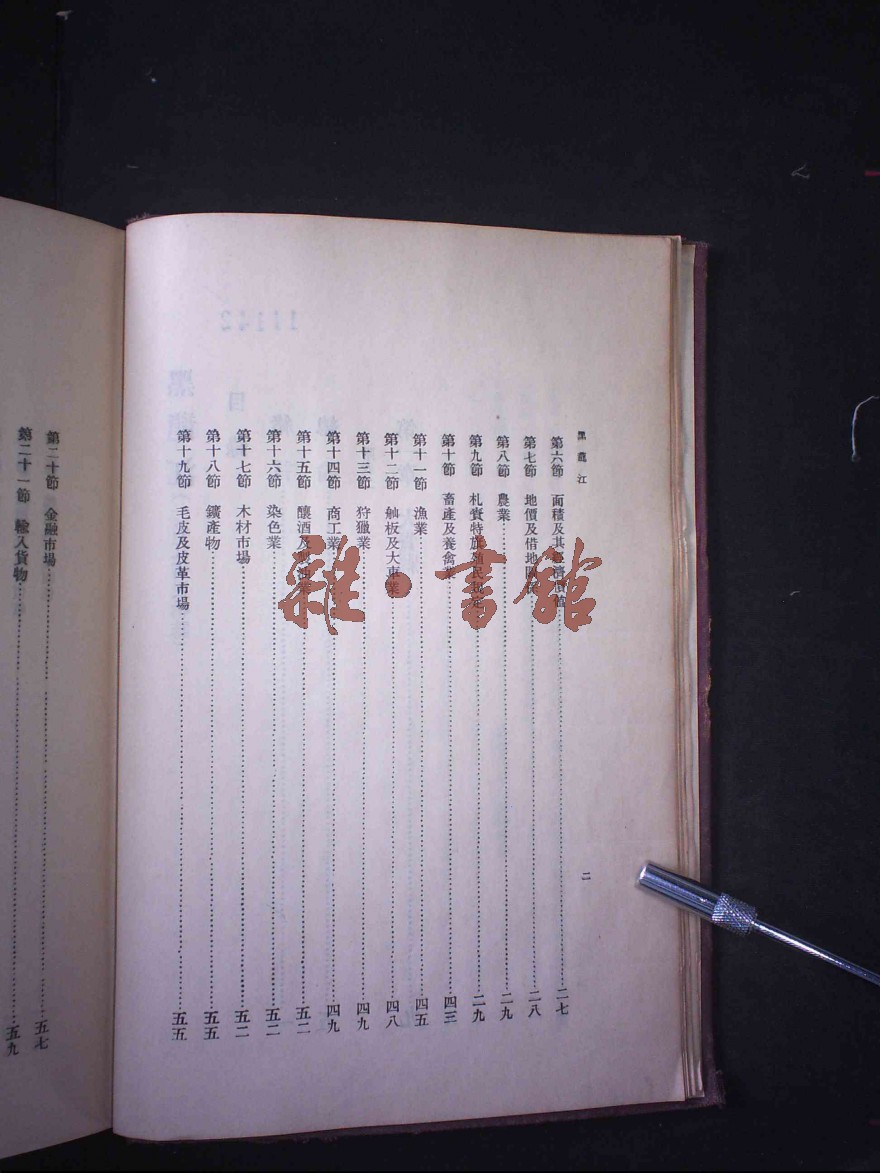 黑龍江
二
第六節 面積及其經濟價值 二七
第七節 地價及借地關係 二八
第八節 農業 二九
第九節 札賚特旗殖民規定 二九
第十節 畜產及養禽業 四三
第十一節 漁業 四五
第十二節 舢板及大車業 四八
第十三節 狩獵業 四九
第十四節 商工業 四九
第十五節 釀酒及製油業 五二
第十六節 染色業 五二
第十七節 木材市場 五二
第十八節 鑛產物 五五
第十九節 毛皮及皮革市場 五五
第二十節 金融市場 五七
第二十一節 輸入貨物 五九
雜·書館
11142